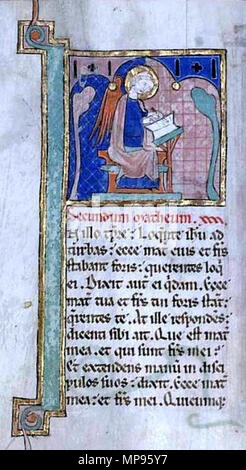 Secundum matheum. xxx
N illo tpre: Loquēte ihu ad
turbas: ecce mat̄ eius et frs̄
stabant foris: querentes loq̄
ei. Dixit aut̄ ei q̄dam. Ecce
mat̄ tua et frs̄ tui foris stāt:
querētes te. At ille respondēs:
dicenti sibi ait. Que est mat̄
mea. et qui sunt frs̄ mei:
Et extendens manū in disci
pulos suos: dixit. Ecce mat̄
mea: et frs̄ mei. Quicunq;
alamy - MP95Y7